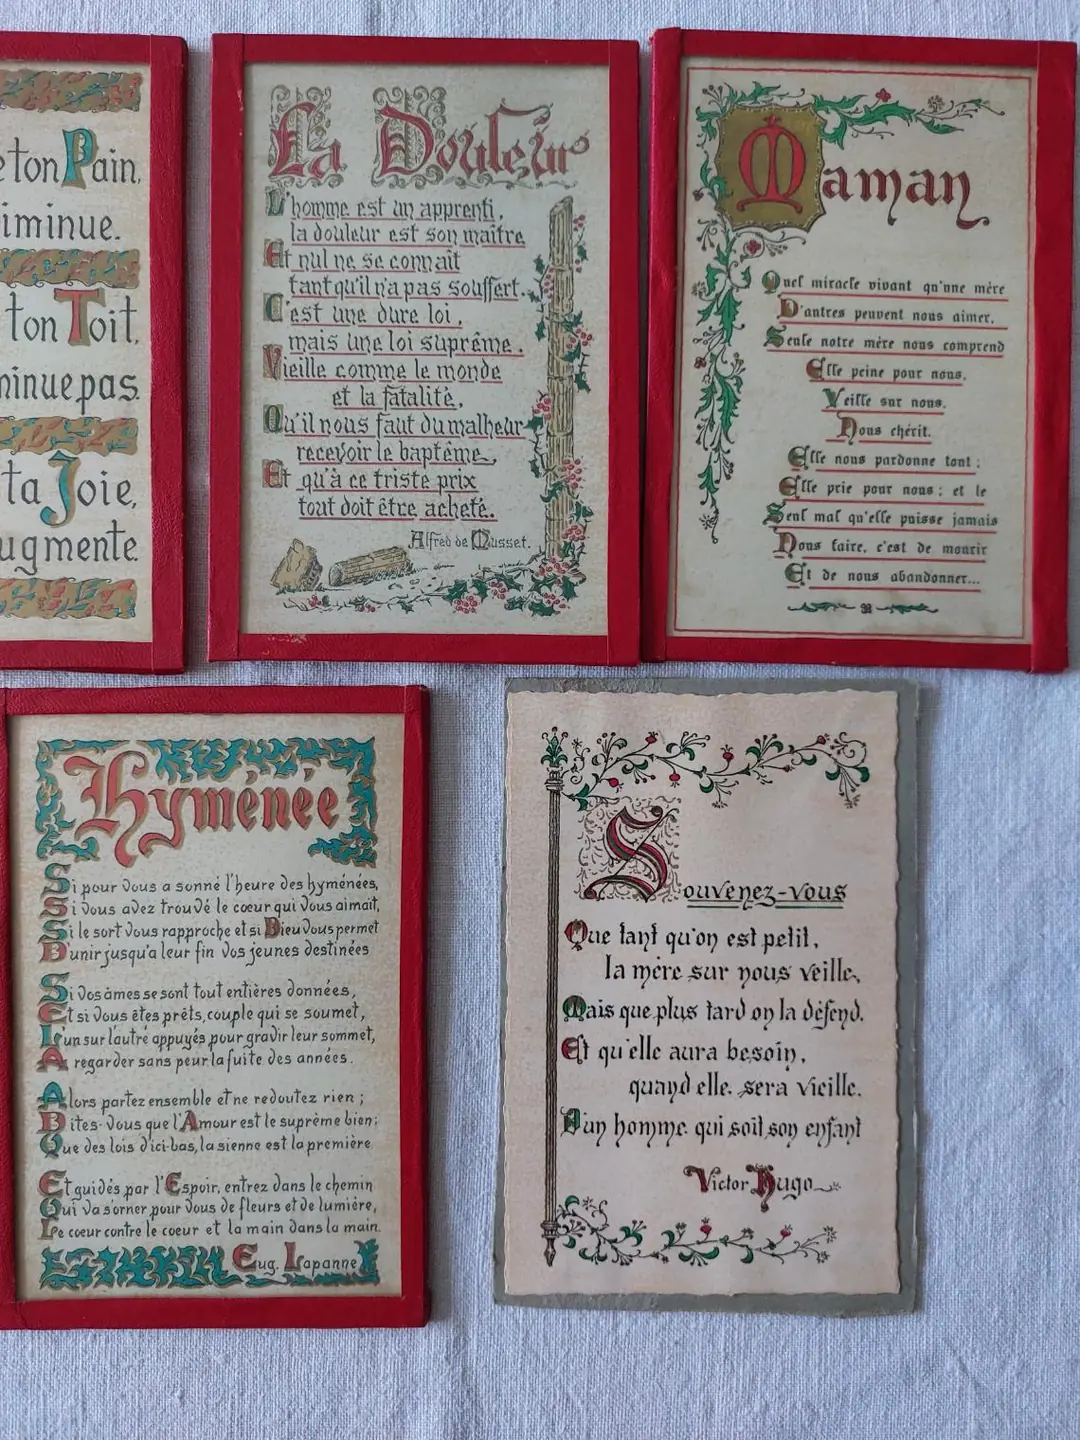 e ton Pain,
iminue.
ton Toit,
minue pas.
ta Joie,
ugmente.
La Douleur
L'homme est un apprenti,
la douleur est son maître
Et nul ne se connaît
tant qu'il n'a pas souffert.
C'est une dure loi,
mais une loi suprême.
Vieille comme le monde
et la fatalité,
Qu'il nous faut du malheur
recevoir le baptême,
Et qu'à ce triste prix
tout doit être acheté.
Alfred de Musset.
Maman
Quel miracle vivant qu'une mère
D'autres peuvent nous aimer,
Seule notre mère nous comprend
Elle peine pour nous,
Veille sur nous,
Nous chérit.
Elle nous pardonne tout ;
Elle prie pour nous ; et le
Seul mal qu'elle puisse jamais
Nous faire, c'est de mourir
Et de nous abandonner...
Hyménée
Si pour vous a sonné l'heure des hyménées,
Si vous avez trouvé le cœur qui vous aimait,
Si le sort vous rapproche et si Dieu vous permet
D'unir jusqu'a leur fin vos jeunes destinées
Si vos âmes se sont tout entières données,
Et si vous êtes prêts, couple qui se soumet,
L'un sur l'autre appuyés pour gravir leur sommet,
A regarder sans peur la fuite des années.
Alors partez ensemble et ne redoutez rien ;
Dites-vous que l'Amour est le suprême bien ;
Que des lois d'ici-bas, la sienne est la première
Et guidés par l'Espoir, entrez dans le chemin
Qui va s'orner pour vous de fleurs et de lumière,
Le coeur contre le coeur et la main dans la main.
Eug. Lapanne
Souvenez-vous
Que tant qu'on est petit,
la mère sur nous veille,
Mais que plus tard on la défend.
Et qu'elle aura besoin,
quand elle sera vieille.
D'un homme qui soit son enfant
Victor Hugo